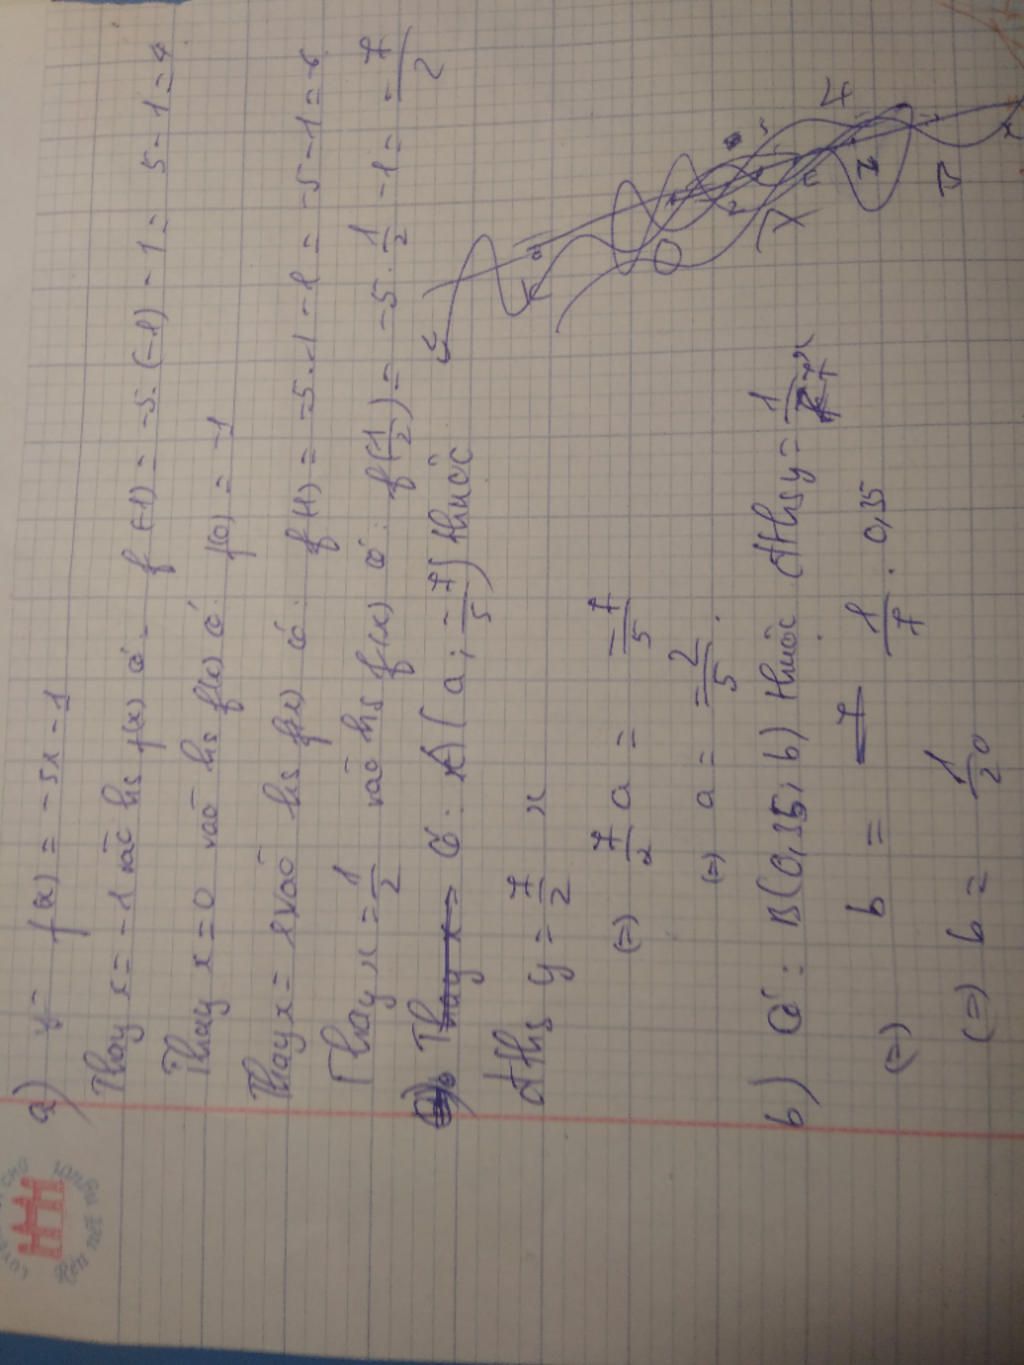 a) y= f(x) = -5x - 1
Thay x = -1 vào hs f(x) có. f(-1) = -5.(-1) - 1 = 5-1=4
Thay x = 0 vào hs f(x) có. f(0) = -1
Thay x = 1 vào hs f(x) có. f(1) = -5.1 - 1 = -5-1=-6
Thay x = 1/2 vào hs f(x) có. f(1/2) = -5. 1/2 - 1 = -7/2
Có: A(a; -7/5) thuộc
đths y = 7/2 x
(=) 7/2 a = -7/5
(=) a = -2/5.
b) Có: B(0,35; b) thuộc đths y = 1/7 x
(=) b = 1/7 . 0,35
(=) b = 1/20